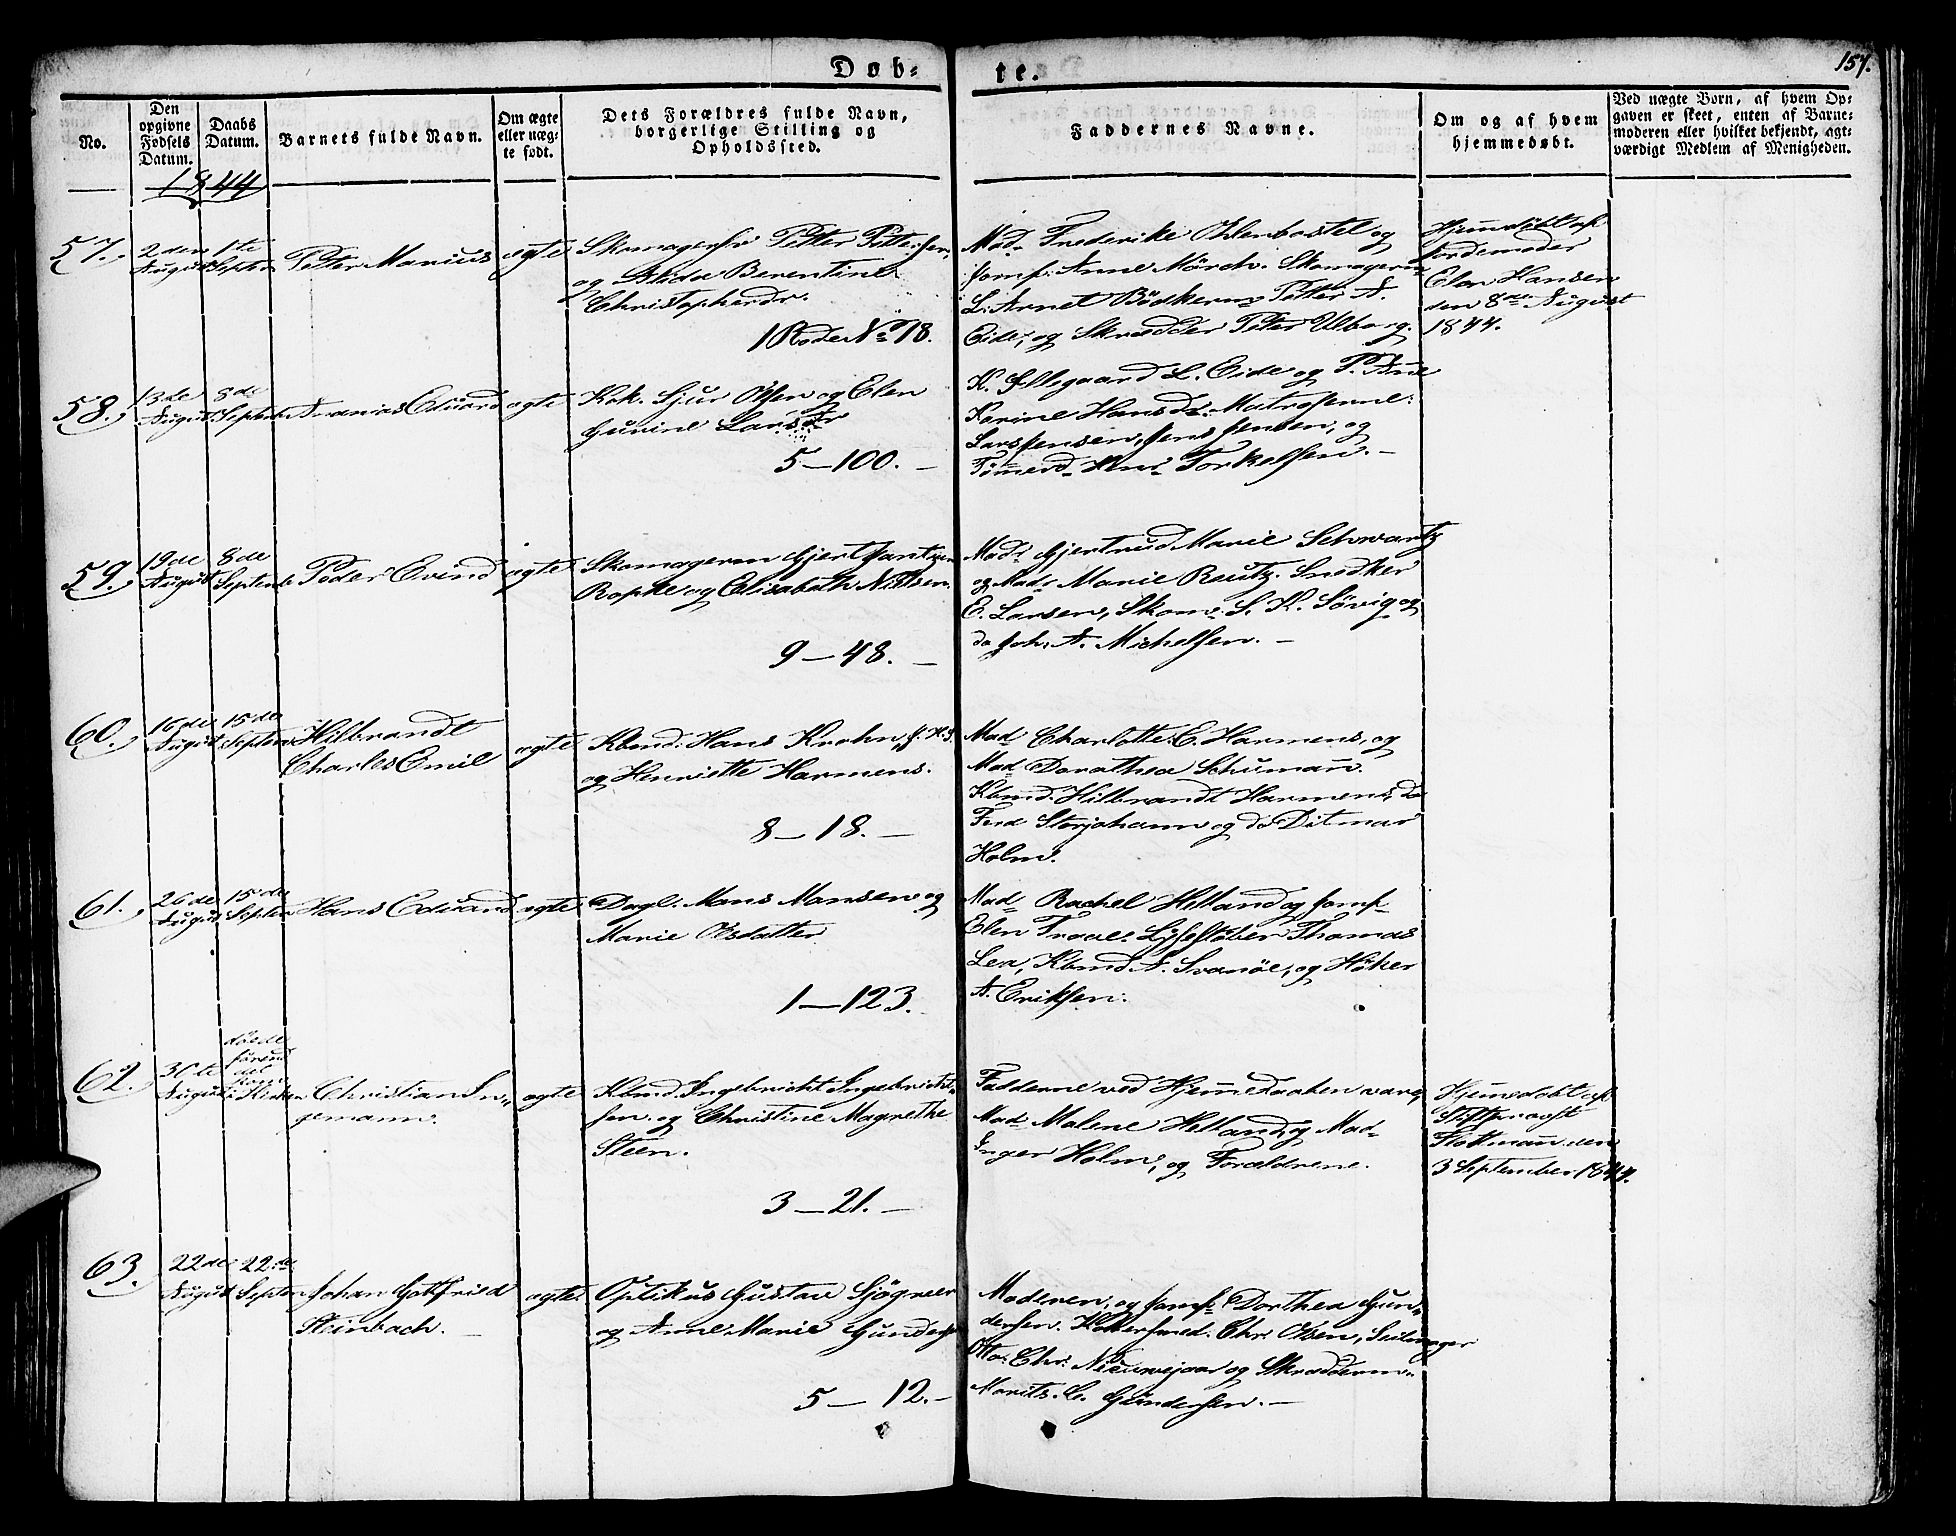 Døb-
te.
157.
No.
Den
opgivne
Fødsels
Datum.
Daabs
Datum.
Barnets fulde Navn.
Om ægte
eller uæg-
te født.
Dets Forældres fulde Navn,
borgerlige Stilling og
Opholdssted.
Faddernes Navne.
Om og af hvem
hjemmedøbt.
Ved uægte Børn, af hvem Op-
gaven er skeet, enten af Barne-
moderen eller hvilket bekjendt, agt-
værdigt Medlem af Menigheden.
1844
57.
2den
August
1te
Septbr
Peter Marius
ægte
Skomagersv Petter Pettersen,
og Alida Berentine
Christophersdr.
1 Rode No 78.
Mad. Frederike Ohlenbostel og
Jomf. Anne Mörch. Skomagerm
L. Arnet Bödkerm Petter A.
Eide, og Skrædder Peter Ulborg.
Hjemdöbt af
Jordemoder
Elen Hansen
den 8de August
1844.
58.
13de
August
8de
Septembr
Ananias Edvard
ægte
Kok. Sjur Olsen og Elen
Gurine Larsdr
5 — 100. —
K. Ellegaard L. Eide og P. Tine
Karine Hansdr. Matroserne:
Lars Jensen, Jens Jensen, og
Tömmerd. Torkelsen. —
59.
19de
August
8de
Septembr
Peder Evind
ægte
Skomagerm Gjert Jantzen
Ropke og Elisabeth Nilsen.
9 — 48. —
Mad. Gjertrud Marie Schwartz
og Mad. Marie Reutz. Snedker
E. Larsen, Skom. S. K. Sövig og
do Joh. A. Michelsen. —
60.
16de
August
15de
Septbr
Hilbrandt
Charles Emil
ægte
Kbmd. Hans Krohn, f. H. S.
og Henriette Harmens.
8 — 18. —
Mad Charlotte C. Harmens, og
Mad Dorothea Schumann.
Kbmd. Hilbrandt Harmens, do
Ferd Storjohann og do Ditmar
Holm.
61.
26de
August
15de
Septbr
Hans Edvard
ægte
Dagl. Mons Monsen og
Marie Olsdatter
1 — 123.
Mad Rachel Helland og Jomf
Elen Troae. Lysestøber Thomas
Lea, Kbmd A. Svanöe, og Höker
A. Eriksen.
62.
30te
August
döede
förend
det
kom
i Kirken
Christian In-
gemann.
ægte
Kbmd. Ingebricht Ingebricht-
sen og Christine Magrethe
Steen.
3 — 21. —
Fadderne ved Hjemmedaaben vare,
Mad. Malene Helland, og Mad.
Inger Holm, og Forældrene.
Hjemdøbt af
Stiftprovst
Flottmann den
3 September 1844.
63.
22de
August
22de
Septbr
Johan Gotfried
Steinbach. —
ægte
Optikus Gustav Sjögreen
og Anne Marie Gunders
5 — 12. —
Moderen, og Jomf. Dorthea Gun-
dersen. Kobersmed. Chr Olsen, Seilmager
Otto Chr. Nieuwejaar og Skrædderm.
Morits. C. Gundersen. —